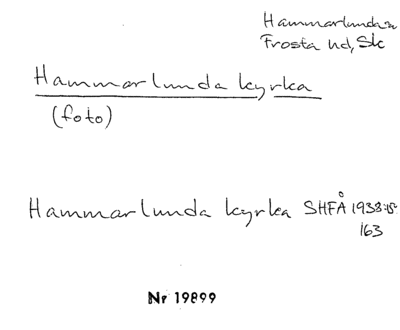 Hammarlunda sn
Frosta hd, Sk
Hammarlunda kyrka
(foto)
Hammarlunda kyrka SHFÅ 1938:15
163
Nr 19899